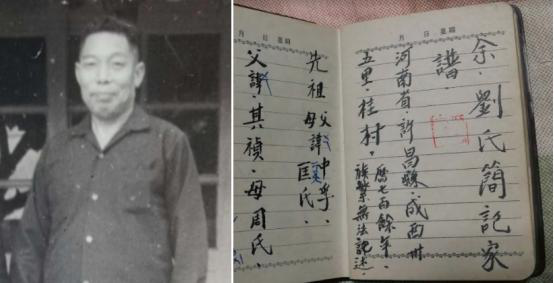 月 日 星期
余．劉氏簡記家
譜．
河南省許昌縣．城西卅
五里．桂村，
歷七百餘年．
族繁無法記述．
月 日 星期
先祖
父諱中孚．
母諱匡氏．
父諱．其禎．母周氏．